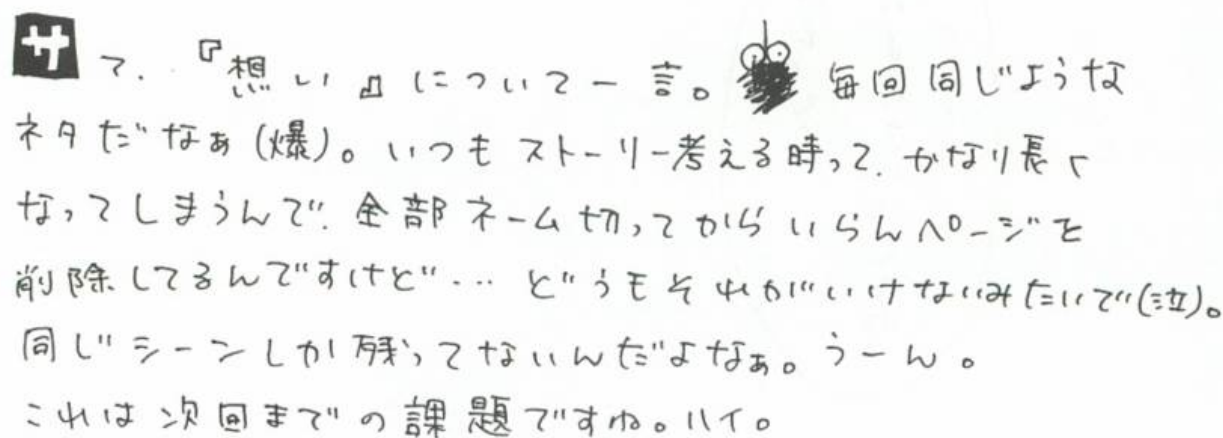 サて、『想い』について一言。毎回同じような
ネタだなぁ(爆)。いつもストーリー考える時って、かなり長く
なってしまうんで、全部ネーム切ってからいらんページを
削除してるんですけど… どうもそれがいけないみたいで(泣)。
同じシーンしか残ってないんだよなぁ。うーん。
これは次回までの課題ですね。ハイ。